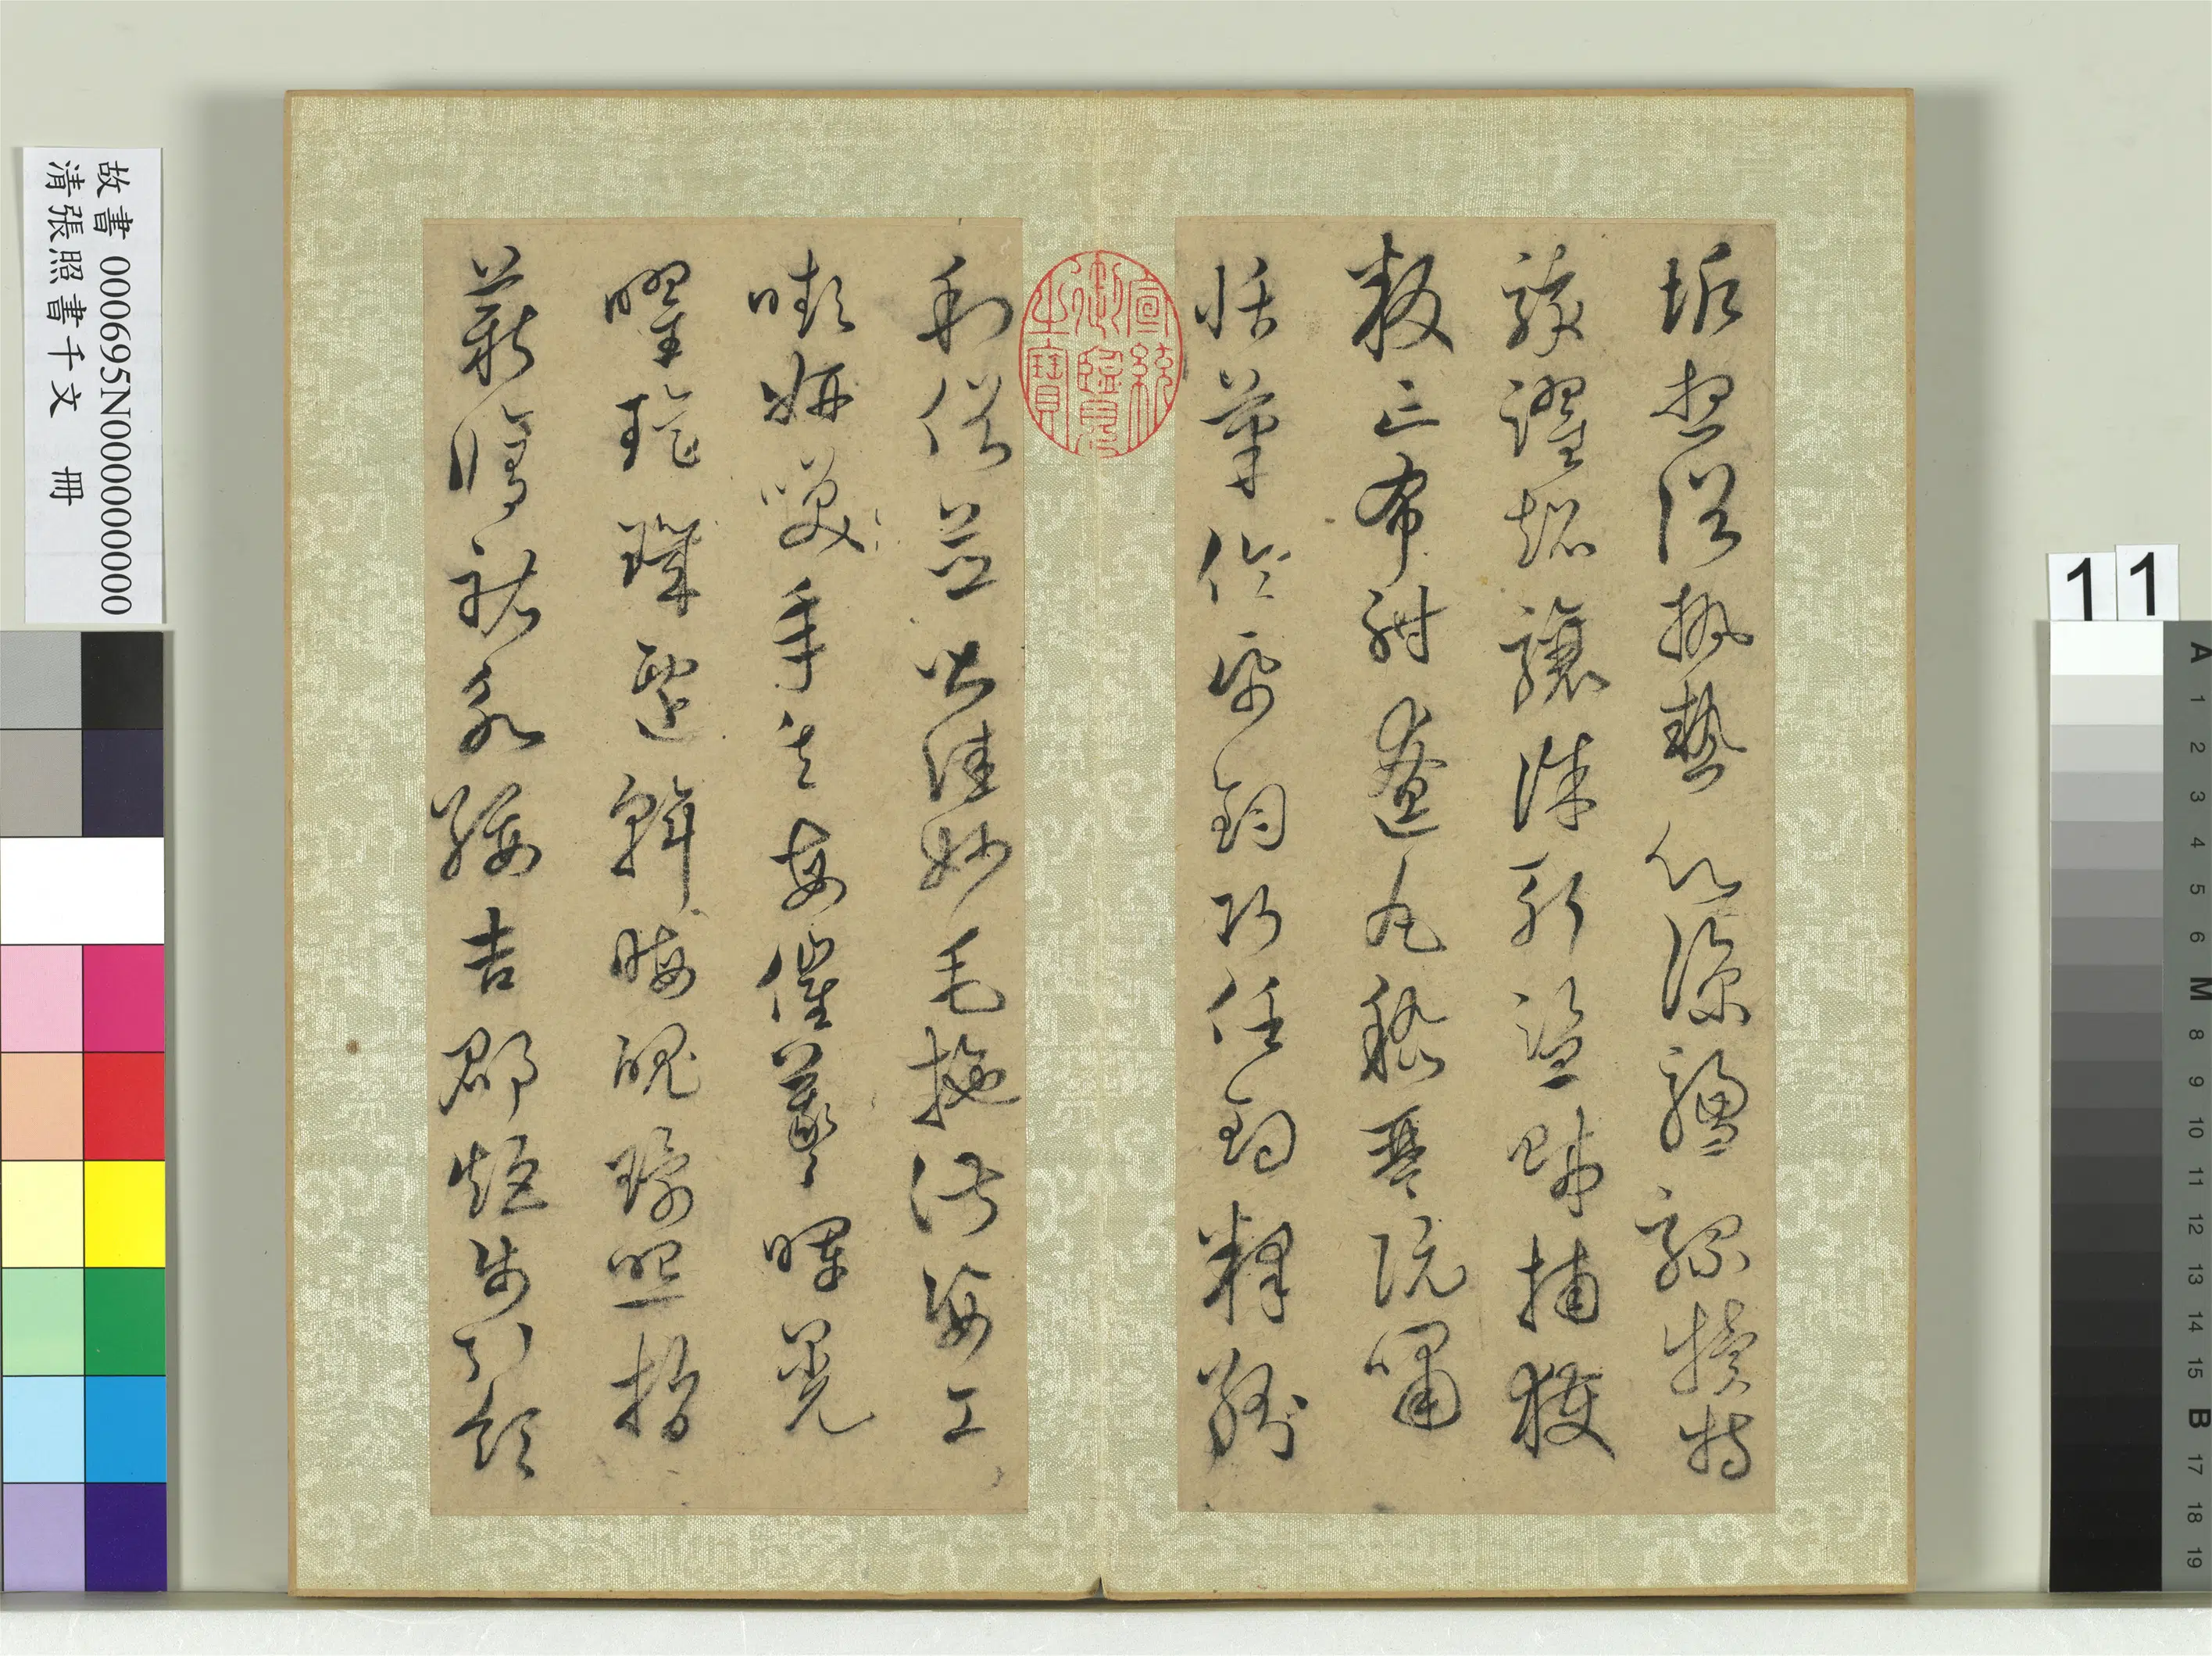 垢想浴執熱願涼驢騾犢特
駭躍超驤誅斬盜賊捕獲
叛亡布射遼丸嵇琴阮嘯
恬筆倫紙鈞巧任釣釋紛
利俗並皆佳妙毛施淑姿工
嚬妍笑年矢每催羲暉晃
曜璇璣懸斡晦魄環照指
薪修祜永綏吉邵矩步引領
宣統御覽之寶
故書 000695N000000000
清張照書千文 冊
11
A 1 2 3 4 5 6 M 8 9 10 11 12 13 14 15 B 17 18 19